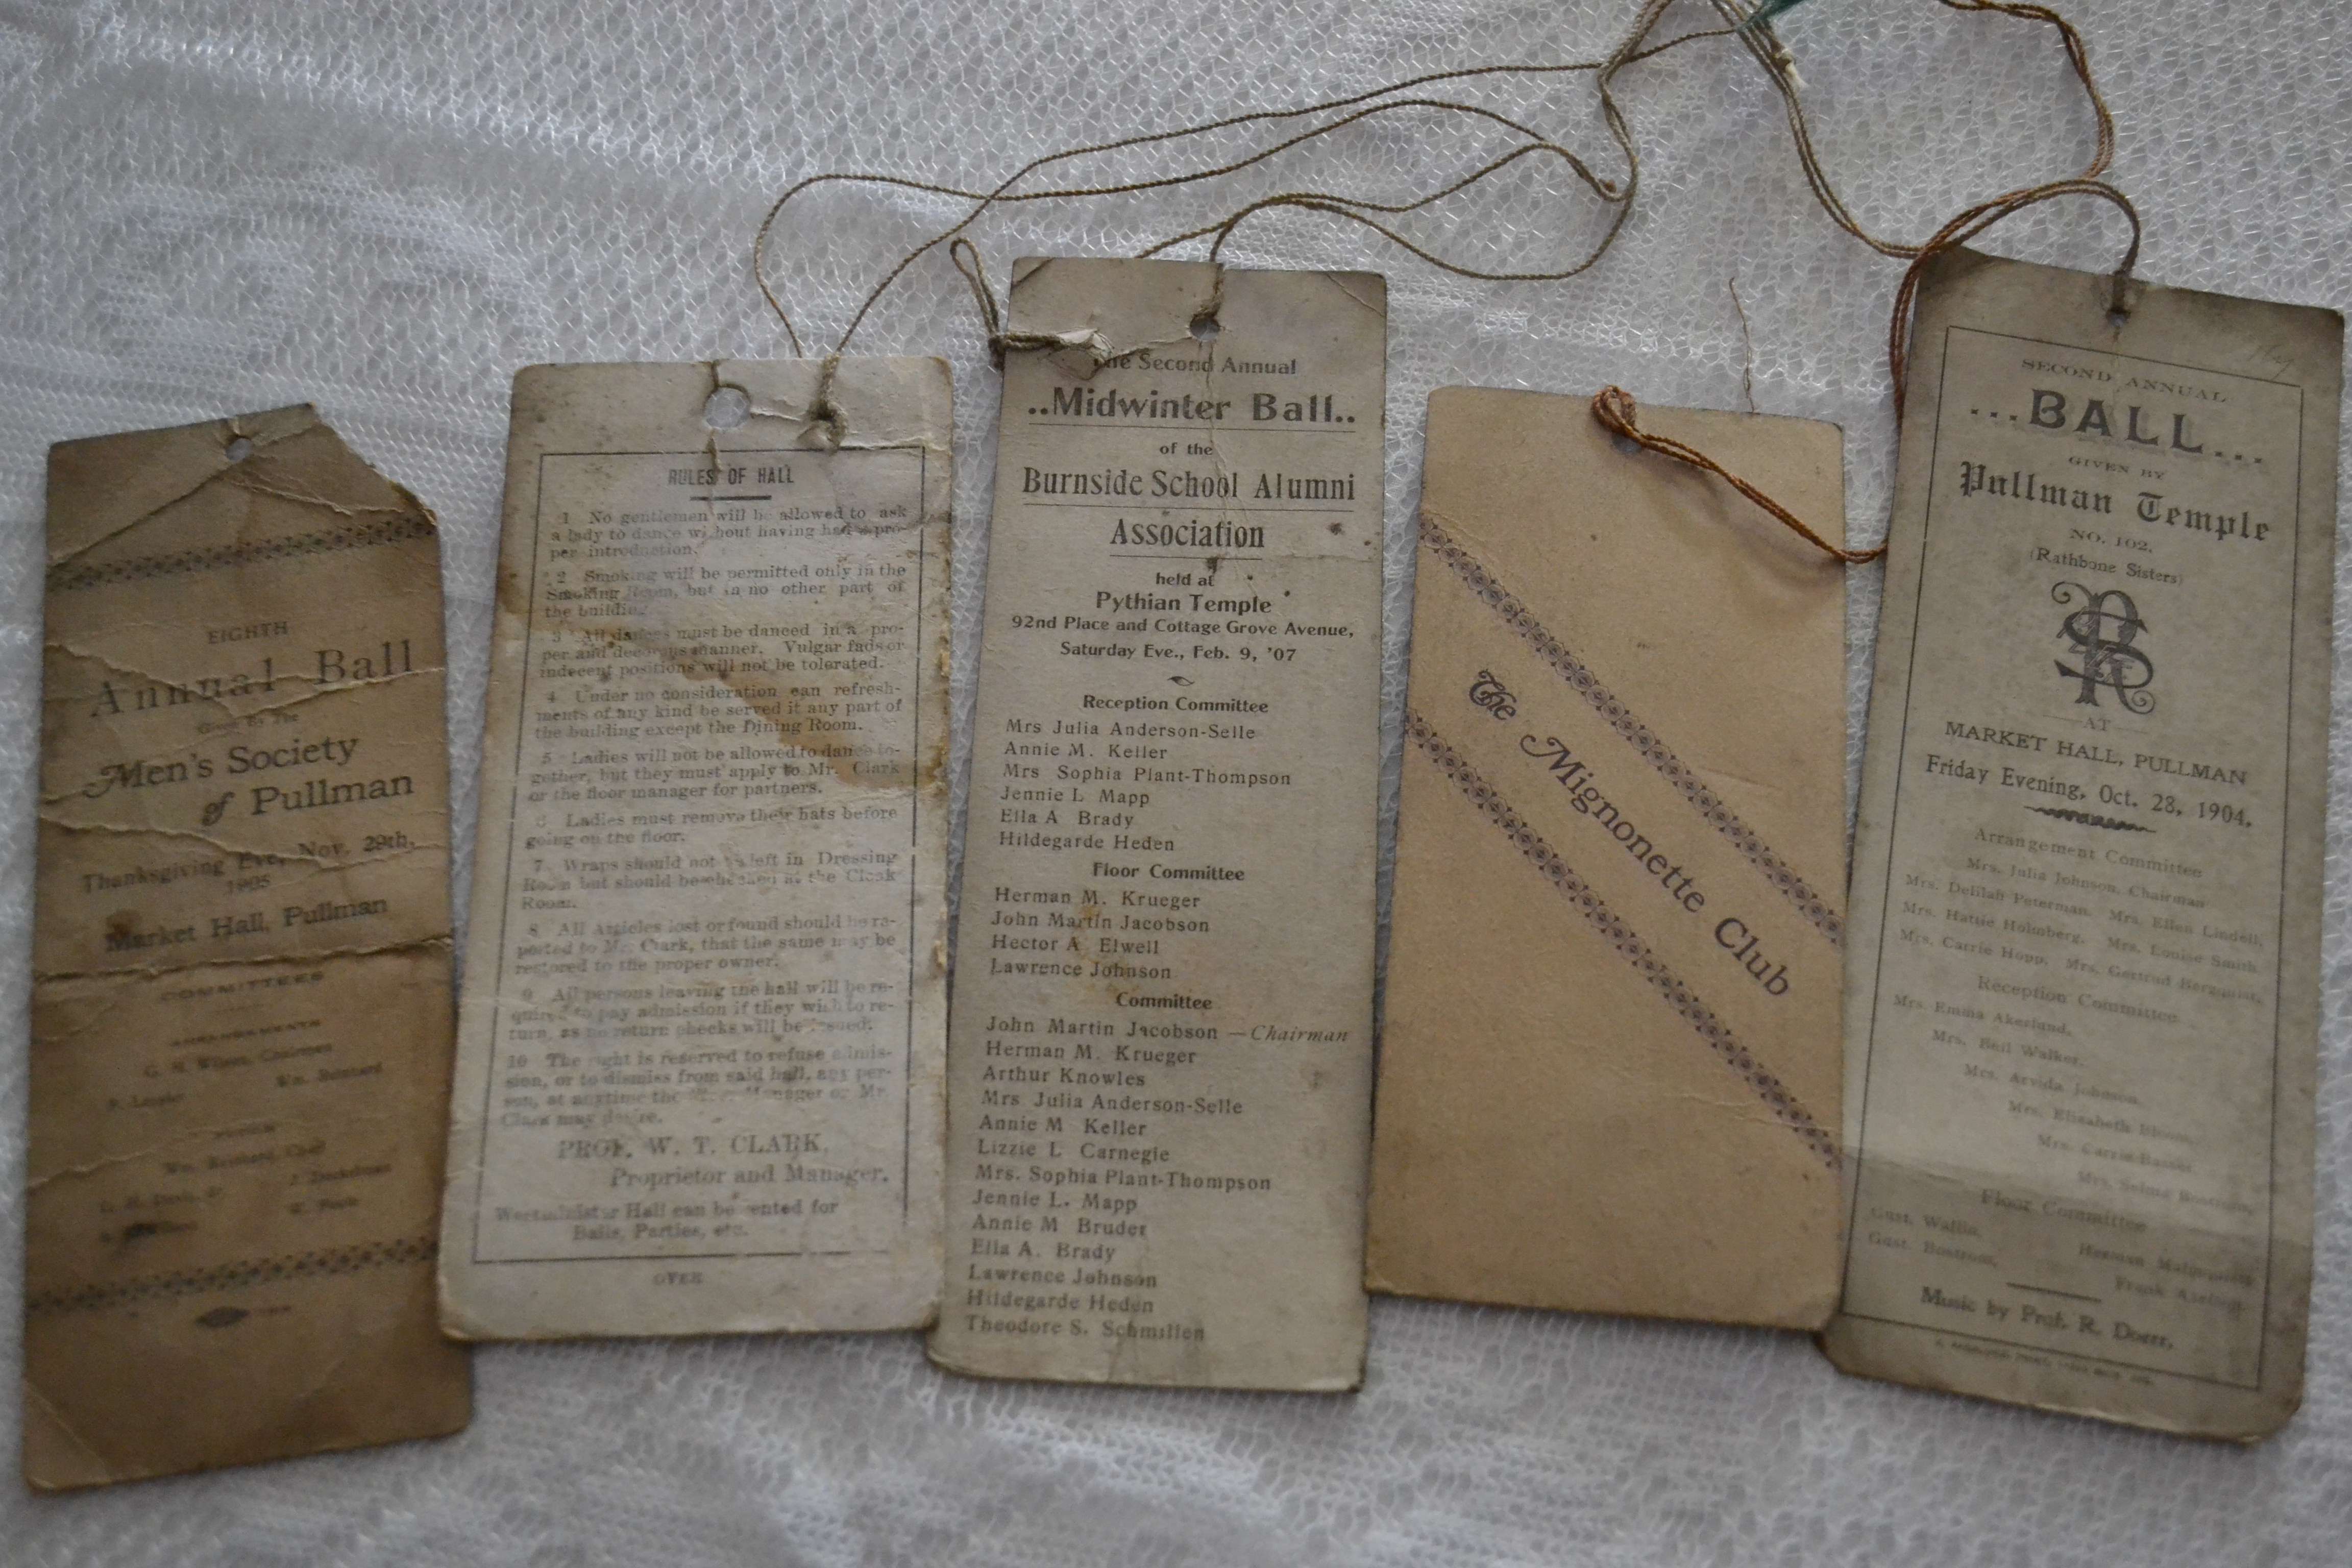 EIGHTH
Annual Ball
Given By The
Men's Society
of Pullman
Thanksgiving Eve, Nov. 29th,
1905
Market Hall, Pullman
COMMITTEES
ARRANGEMENTS
G. H. Wilson, Chairman
FLOOR
RULES OF HALL
1 No gentlemen will be allowed to ask
a lady to dance without having had a pro-
per introduction.
2 Smoking will be permitted only in the
Smoking Room, but in no other part of
the building.
3 All dances must be danced in a pro-
per and decorous manner. Vulgar fads or
indecent positions will not be tolerated.
4 Under no consideration can refresh-
ments of any kind be served it any part of
the building except the Dining Room.
5 Ladies will not be allowed to dance to-
gether, but they must apply to Mr. Clark
or the floor manager for partners.
6 Ladies must remove their hats before
going on the floor.
7. Wraps should not be left in Dressing
Room but should be checked at the Cloak
Room.
8 All Articles lost or found should be re-
ported to Mr. Clark, that the same may be
restored to the proper owner.
9 All persons leaving the hall will be re-
quired to pay admission if they wish to re-
turn, as no return checks will be issued.
10 The right is reserved to refuse admis-
sion, or to dismiss from said hall, any per-
son, at anytime the Manager or Mr.
Clark may desire.
PROF. W. T. CLARK,
Proprietor and Manager.
Westminister Hall can be rented for
Balls, Parties, etc.
OVER
The Second Annual
..Midwinter Ball..
of the
Burnside School Alumni
Association
held at
Pythian Temple
92nd Place and Cottage Grove Avenue,
Saturday Eve., Feb. 9, '07
Reception Committee
Mrs Julia Anderson-Selle
Annie M. Keller
Mrs Sophia Plant-Thompson
Jennie L Mapp
Ella A Brady
Hildegarde Heden
Floor Committee
Herman M. Krueger
John Martin Jacobson
Hector A Elwell
Lawrence Johnson
Committee
John Martin Jacobson — Chairman
Herman M. Krueger
Arthur Knowles
Mrs Julia Anderson-Selle
Annie M Keller
Lizzie L Carnegie
Mrs. Sophia Plant-Thompson
Jennie L. Mapp
Annie M Bruder
Ella A. Brady
Lawrence Johnson
Hildegarde Heden
Theodore S. Schmillen
The Mignonette Club
SECOND ANNUAL
...BALL...
GIVEN BY
Pullman Temple
NO. 102.
(Rathbone Sisters)
AT
MARKET HALL, PULLMAN
Friday Evening, Oct. 28, 1904.
Arrangement Committee
Mrs. Julia Johnson, Chairman
Mrs. Delilah Peterman, Mrs. Ellen Lindell,
Mrs. Hattie Holmberg, Mrs. Louise Smith
Mrs. Carrie Hopp, Mrs. Gertrud Bergquist,
Reception Committee
Mrs. Emma Akerlund,
Mrs. Bell Walker,
Mrs. Arvida Johnson,
Mrs. Elizabeth Bloom,
Mrs. Carrie
Mrs. Selma Bostrom,
Floor Committee
Gust. Wallin,
Herman
Gust. Bostrom,
Frank
Music by Prof. R. Doerr,